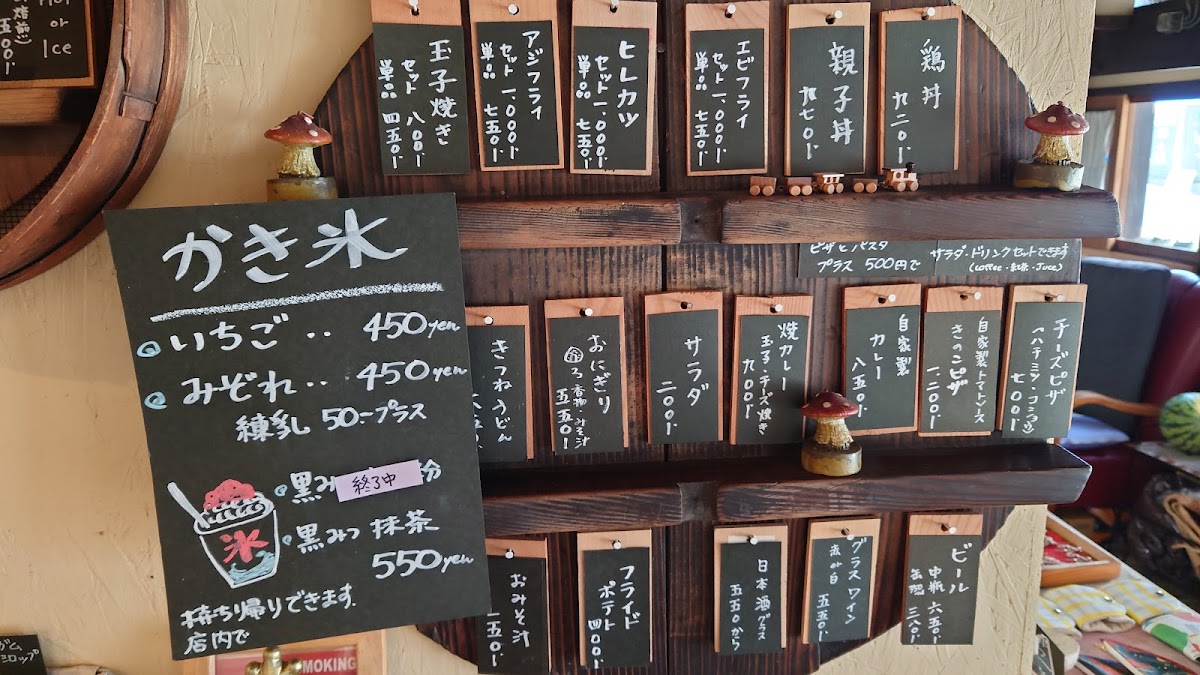 Hot
or
Ice
玉子焼き
セット 八〇〇
単品 四五〇
アジフライ
セット 一、〇〇〇
単品 七五〇
ヒレカツ
セット 一、〇〇〇
単品 七五〇
エビフライ
セット 一、〇〇〇
単品 七五〇
親子丼
九七〇
鶏丼
九二〇
かき氷
いちご‥ 450yen
みぞれ‥ 450yen
練乳 50〜プラス
黒み
終了中
粉
黒みつ 抹茶
550yen
氷
持ち帰りできます.
店内で
ピザとパスタ
プラス 500円で
サラダ・ドリンクセットできます
(coffee・紅茶・Juce)
きつねうどん
おにぎり
2つ 香物・みそ汁
五五〇
サラダ
二〇〇
焼カレー
玉子・チーズ焼き
九〇〇
自家製
カレー
八五〇
自家製トマトソース
きのこピザ
一、二〇〇
チーズピザ
(ハチミツ・コショウ)
七〇〇
おみそ汁
一五〇
フライド
ポテト 四〇〇
日本酒グラス
五五〇から
グラスワイン
赤or白 五五〇
ビール
中瓶 六五〇
缶 三八〇
MOKING
ガム
シロップ